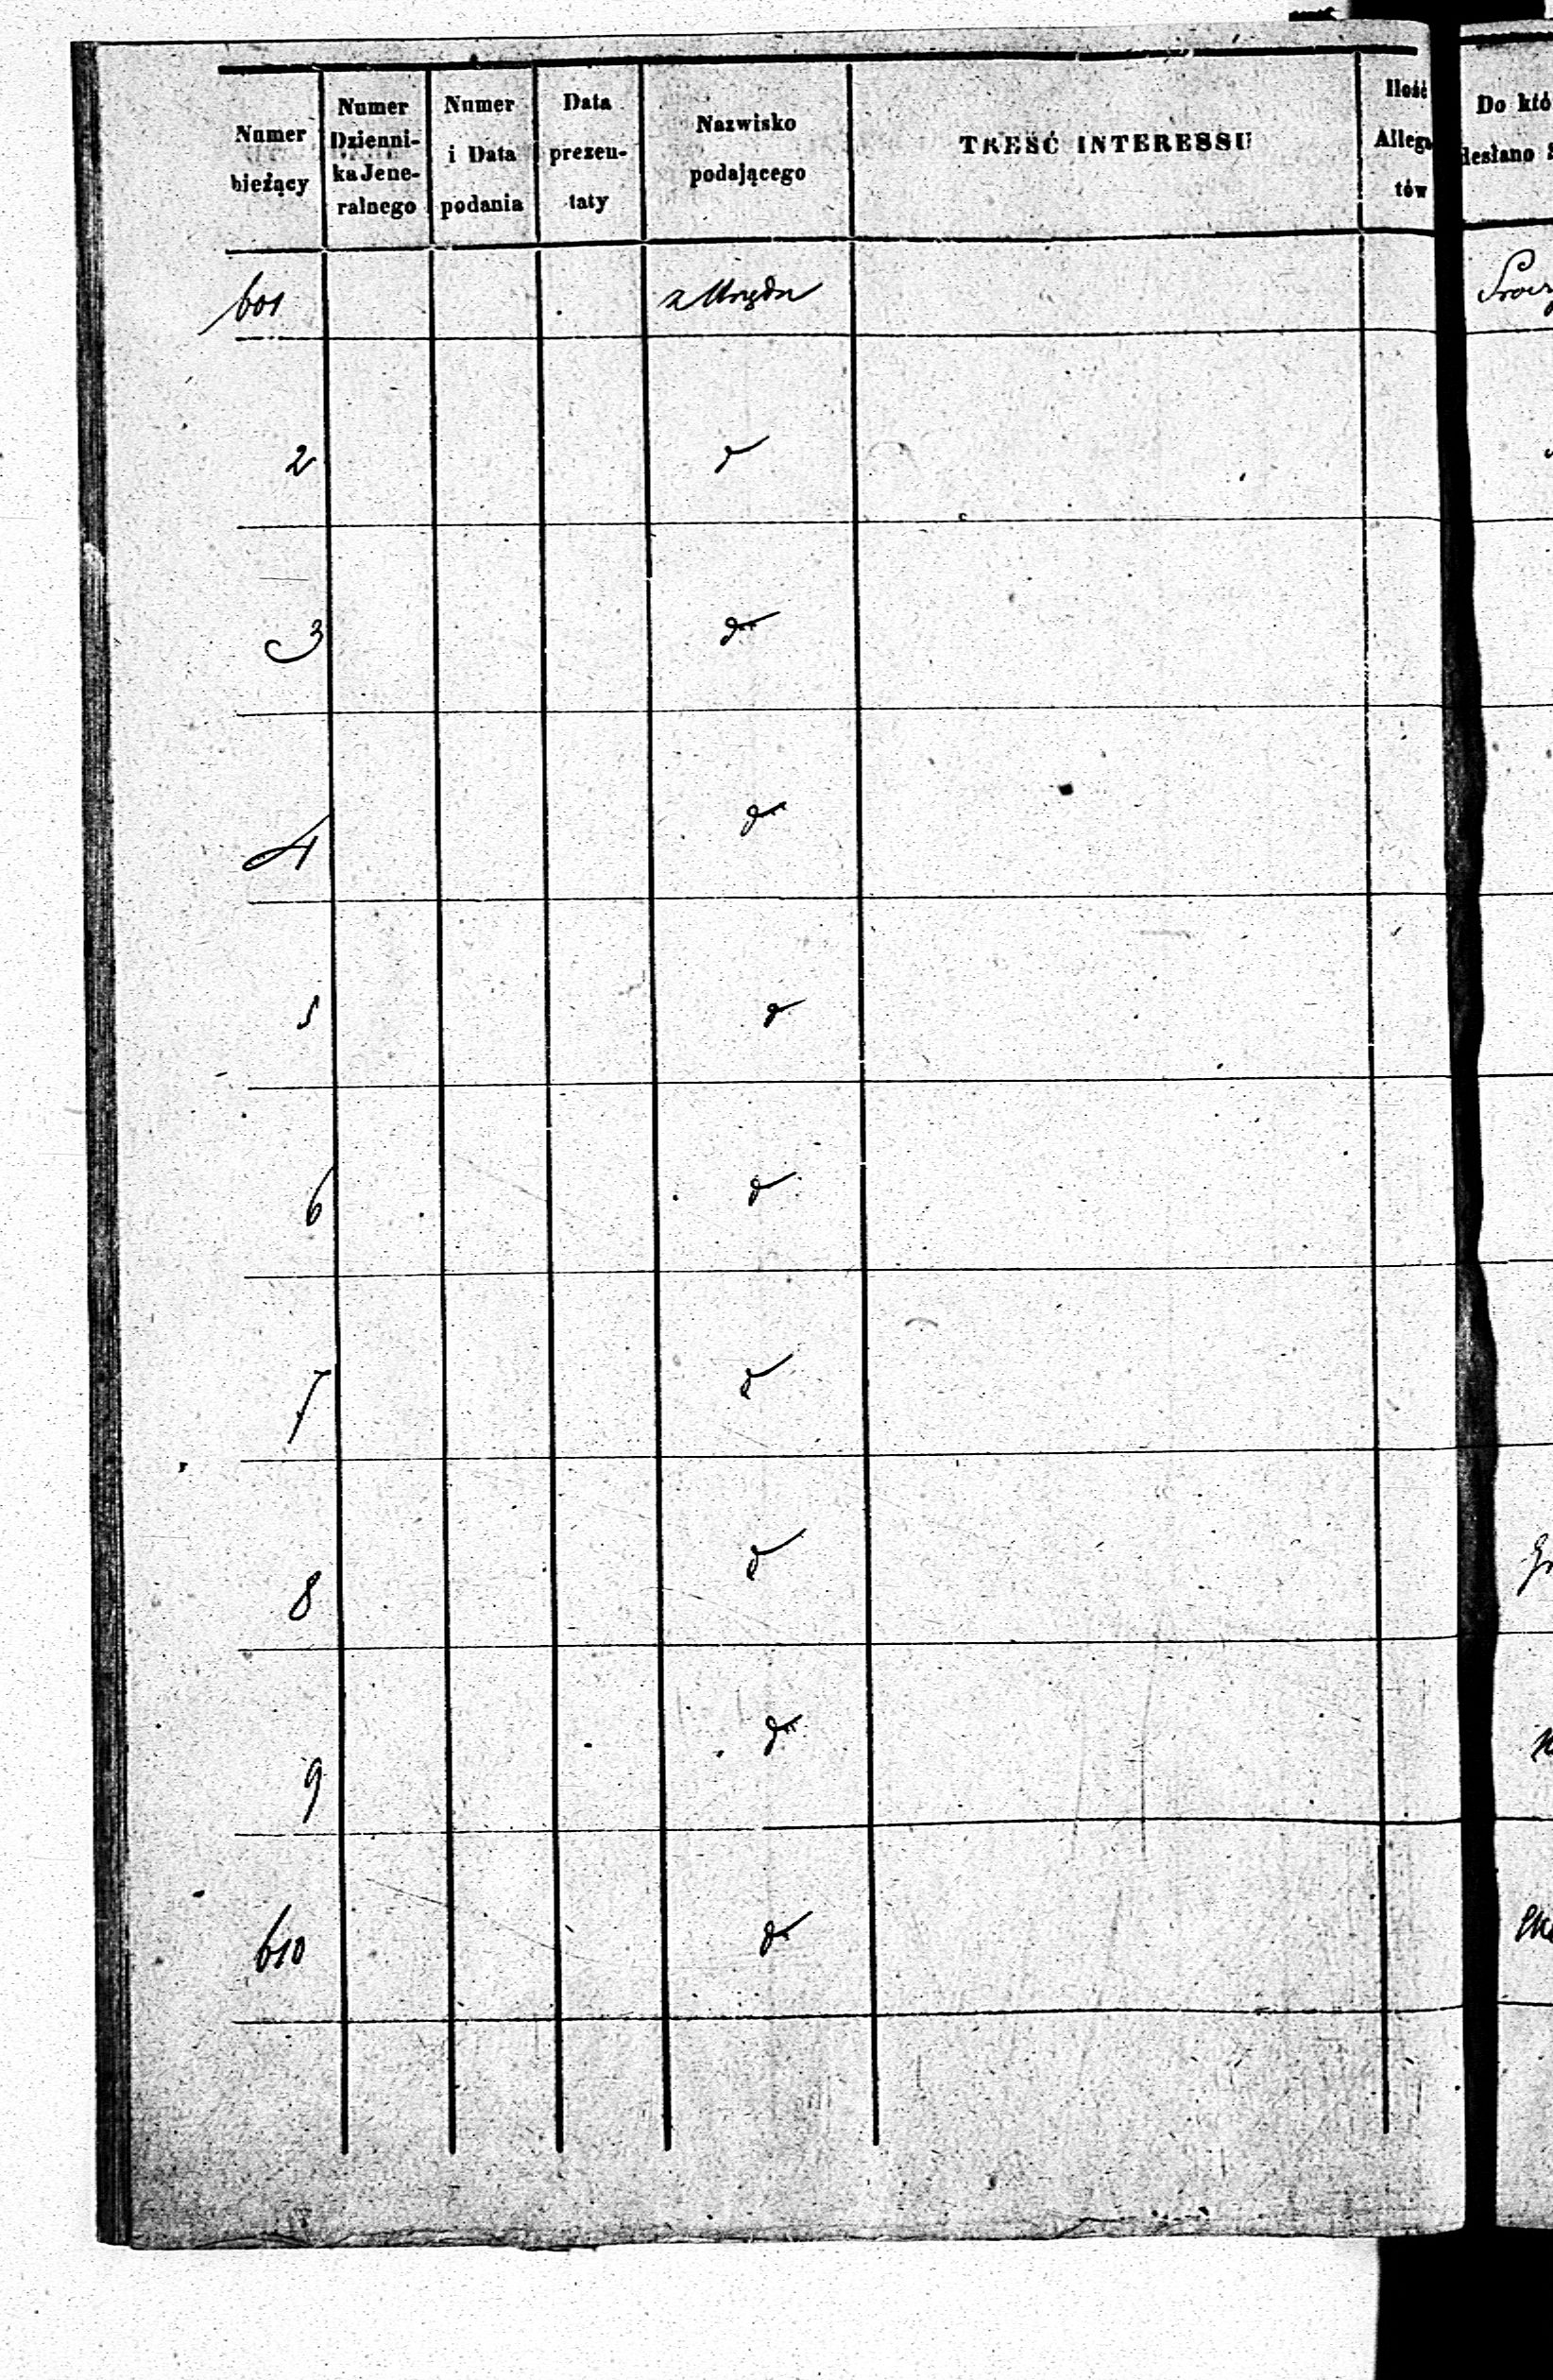 Numer bieżący
Numer Dzienni- ka Jene- ralnego
Numer i Data podania
Data prezen- taty
Nazwisko podającego
TREŚĆ INTERESSU
Ilość Allega tów
Do któ
desłano
601 z Urzędu
2 d
3 do
4 do
5 d
6 d
7 d
8 d
9 do
610 do